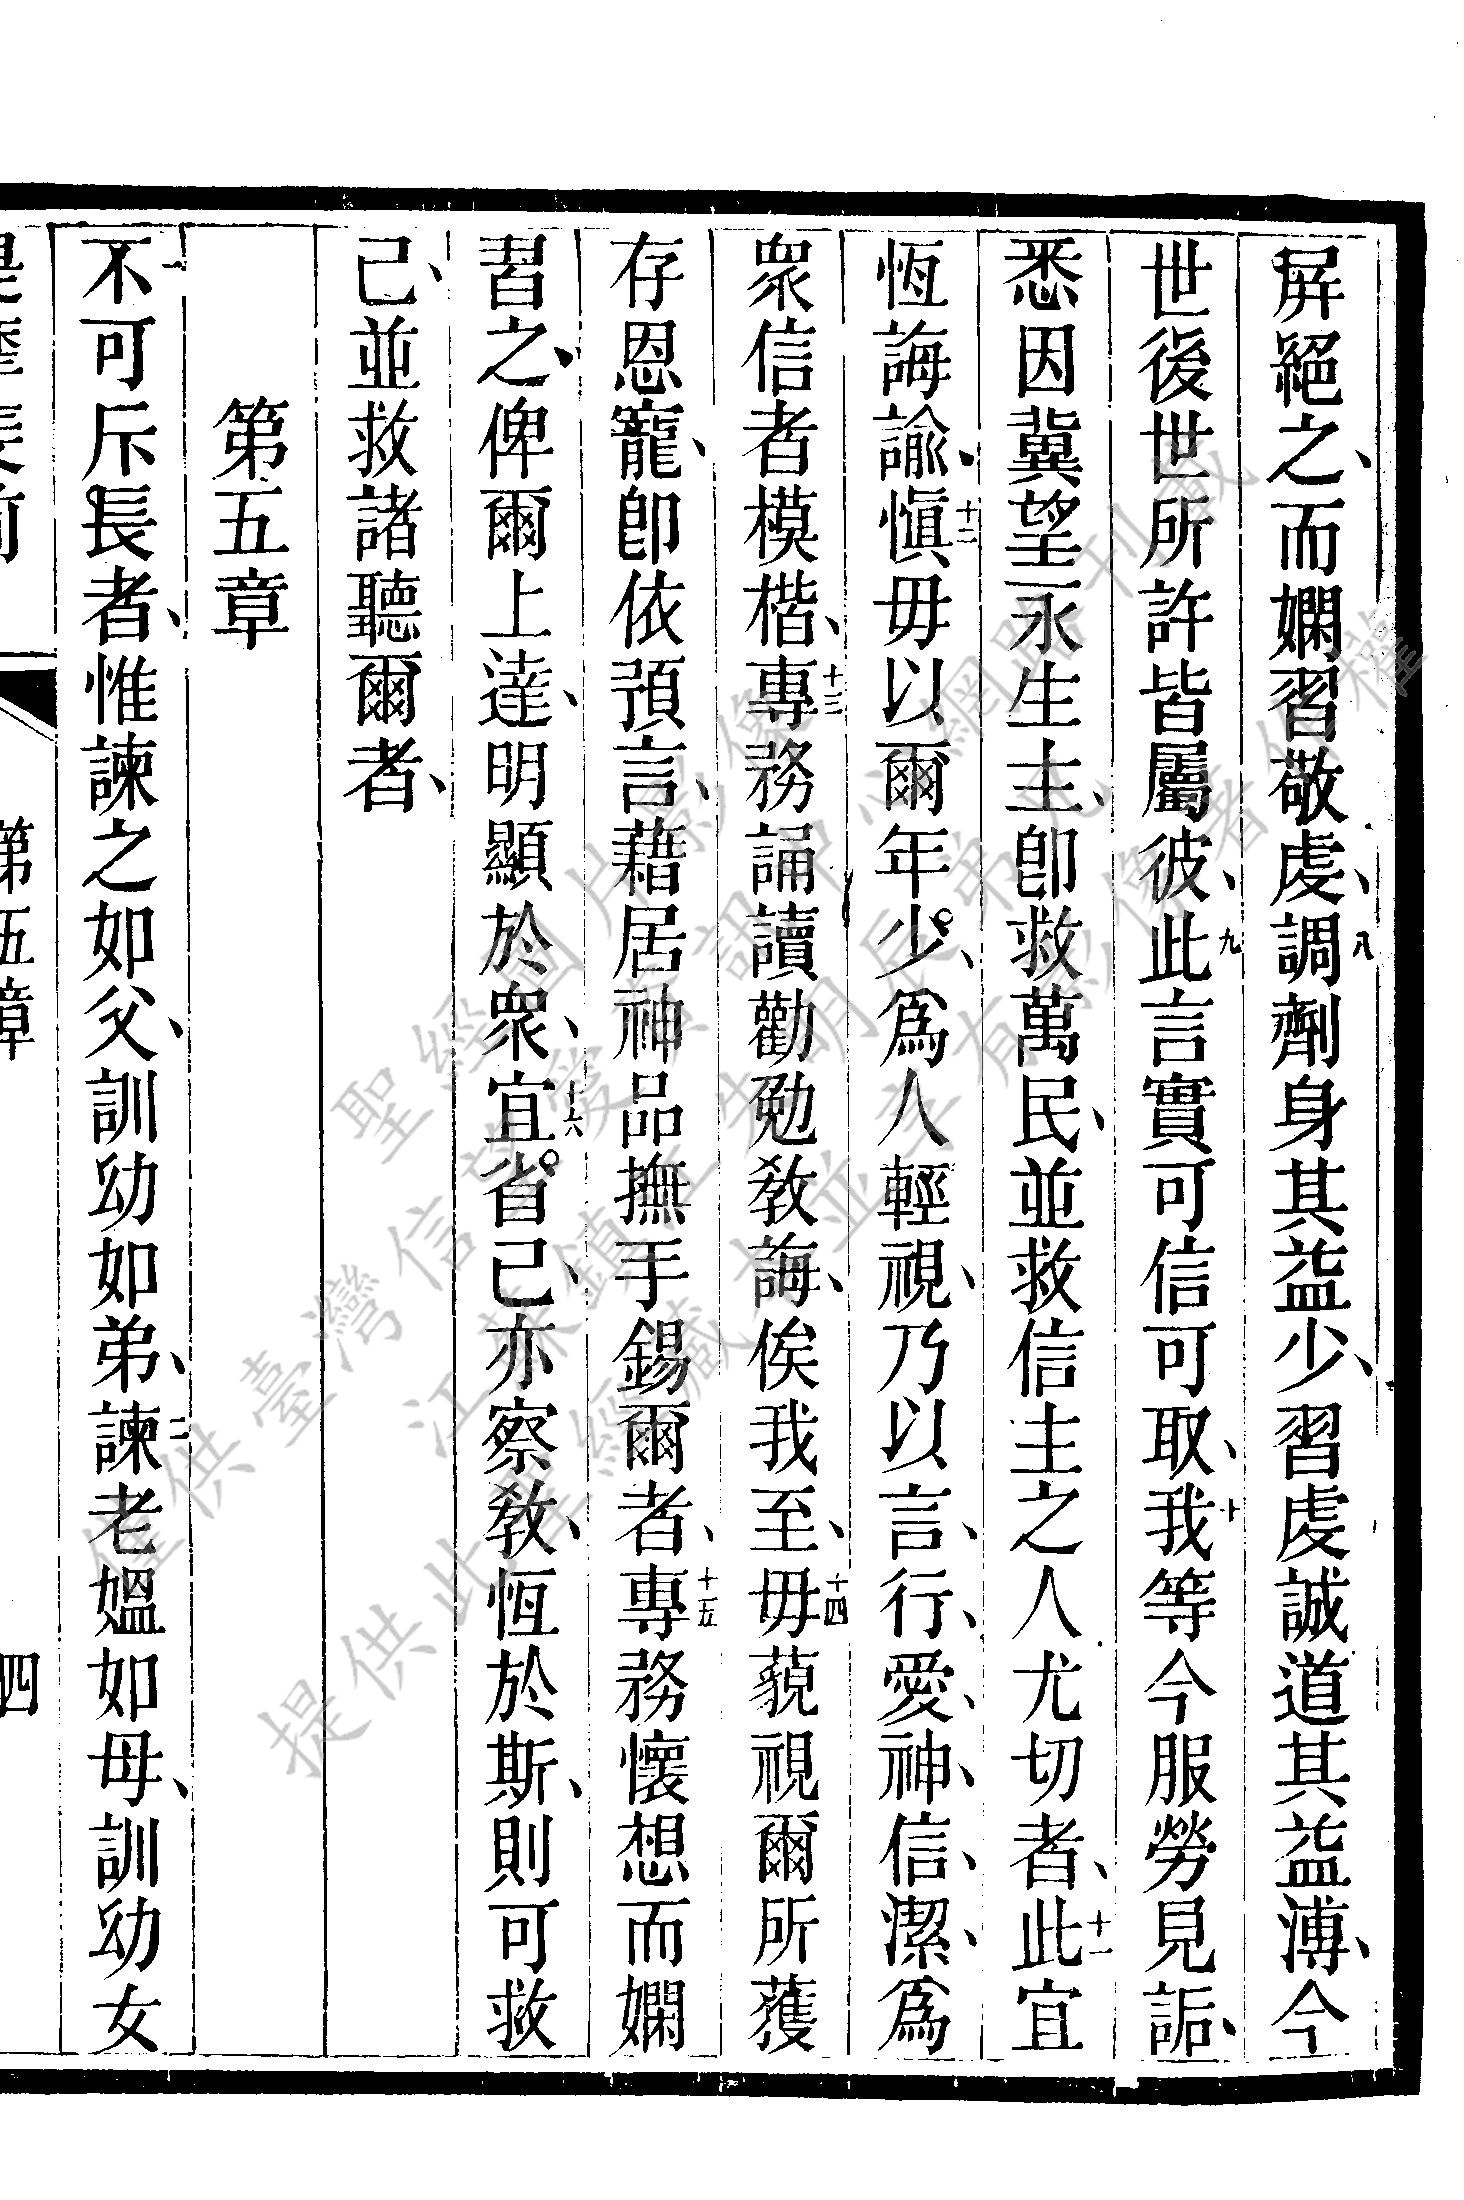 屏絕之、而嫻習敬虔、八調劑身其益少、習虔誠道其益溥、今
世後世所許皆屬彼、九此言實可信可取、十我等今服勞見詬、
悉因冀望永生主、卽救萬民、並救信主之人尤切者、十一此宜
恆誨諭、十二愼毋以爾年少、爲人輕視、乃以言、行、愛、神、信、潔、爲
衆信者模楷、十三專務誦讀勸勉敎誨、俟我至、十四毋藐視爾所獲
存恩寵、卽依預言、藉居神品撫手錫爾者、十五專務懷想而嫻
習之、俾爾上達、明顯於衆、十六宜省己、亦察敎、恆於斯、則可救
己、並救諸聽爾者、
第五章
一不可斥長者、惟諫之如父、訓幼如弟、二諫老媼如母、訓幼女
第五章 四
僅供臺灣信望愛資訊中心網路刊載
提供此聖經藏本並享有影像著作權